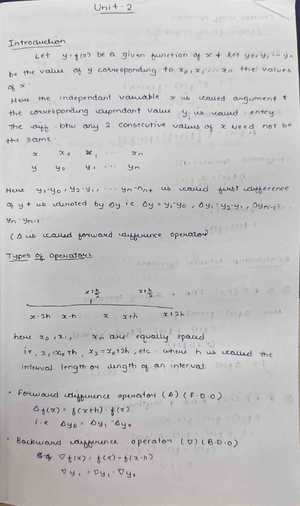 Unit-2
Introduction
Let y=f(x) be a given function of x & let y0, y1 ... yn
be the value of y corresponding to x0, x1 ... xn the values
of x.
Here the independent variable x is called argument &
the corresponding dependant value y is called entry
The diff. btw any 2 consecutive values of x need not be
the same
x x0 x1 ... xn
y y0 y1 ... yn
Here y1-y0, y2-y1, ... yn-yn-1 is called first difference
of y & is denoted by Δy i.e Δy = y1-y0, Δy1 = y2-y1, Δyn-1=
yn-yn-1.
(Δ is called forward difference operator)
Types of Operators
x+h/2 x+h/2
x-2h x-h x x+h x+2h
here x0, x1, ... xn are equally spaced
i.e, x1=x0+h, x2=x0+2h, etc. where h is called the
interval length or length of an interval
• Forward difference operator (Δ) (F.D.O)
Δf(x) = f(x+h)-f(x)
i.e Δy0 = Δy1-Δy0
• Backward difference operator (∇) (B.D.O)
∇f(x) = f(x)-f(x-h)
∇y1 = ∇y1-∇y0